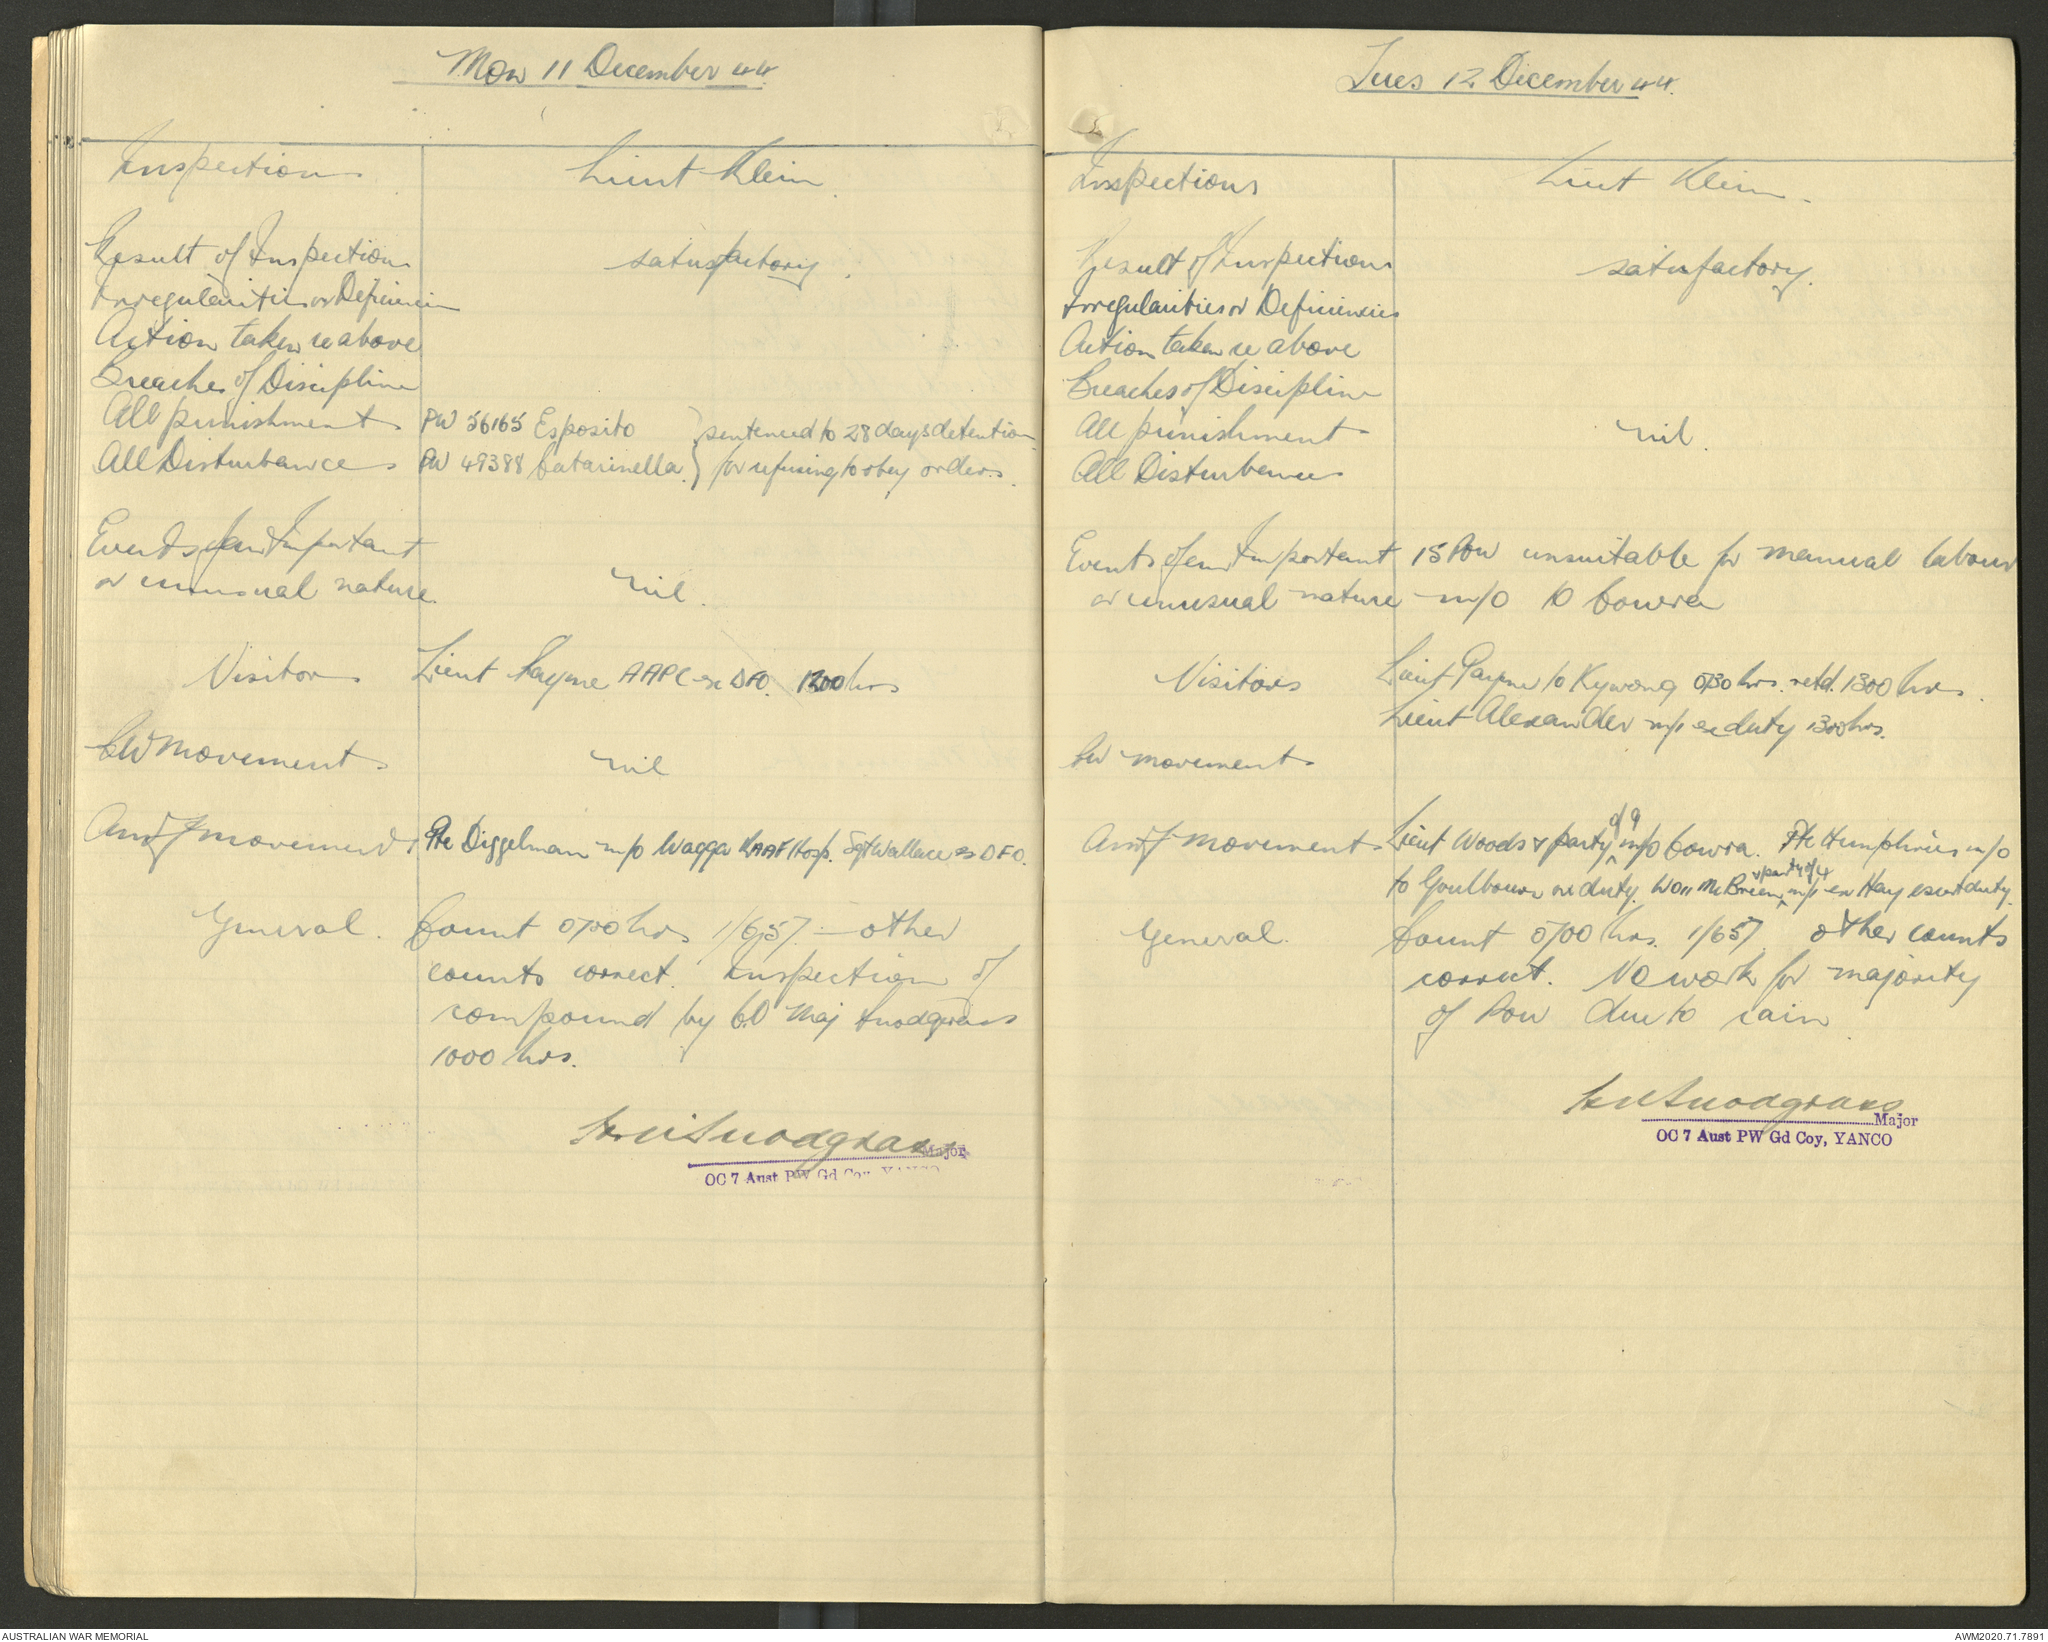 Mon 11 December 44.
Inspection
Lieut Klein
Result of Inspection
satisfactory.
Irregularities or Deficiencies
Action taken re above
Breaches of Discipline
All punishments
PW 56165 Esposito } sentenced to 28 days detention
All Disturbances
PW 49388 Catarinella } for refusing to obey orders.
Events of an Important
or unusual nature.
nil.
Visitors
Lieut Payne AAPC ex DFO. 1200 hrs
PW Movements
nil
Amf movements
Pte Diggelman m/o Wagga RAAF Hosp. Sgt Wallace ex DFO.
General.
Count 0700 hrs 1/657. - other
counts correct. Inspection of
compound by CO Maj Snodgrass
1000 hrs.
Snodgrass
Major
OC 7 Aust PW Gd Coy, YANCO
Tues 12 December 44.
Inspections
Lieut Klein.
Result of Inspections
satisfactory.
Irregularities or Deficiencies
Action taken re above
Breaches of Discipline
All punishments
nil.
All Disturbances
Events of an Important
15 Pow unsuitable for manual labour
or unusual nature
m/o to Cowra
Visitors
Lieut Payne to Kywong 0730 hrs. retd. 1300 hrs.
Lieut Alexander m/i ex duty 1300 hrs.
PW movements
Amf movements
Lieut Woods & party of 9 m/o Cowra. Pte Humphries m/o
to Goulbourn on duty. WOII McBrien & party of 4 m/i ex Hay escort duty.
General.
Count 0700 hrs. 1/657. other counts
correct. No work for majority
of Pow due to rain
Snodgrass
Major
OC 7 Aust PW Gd Coy, YANCO
AUSTRALIAN WAR MEMORIAL
AWM2020.71.7891